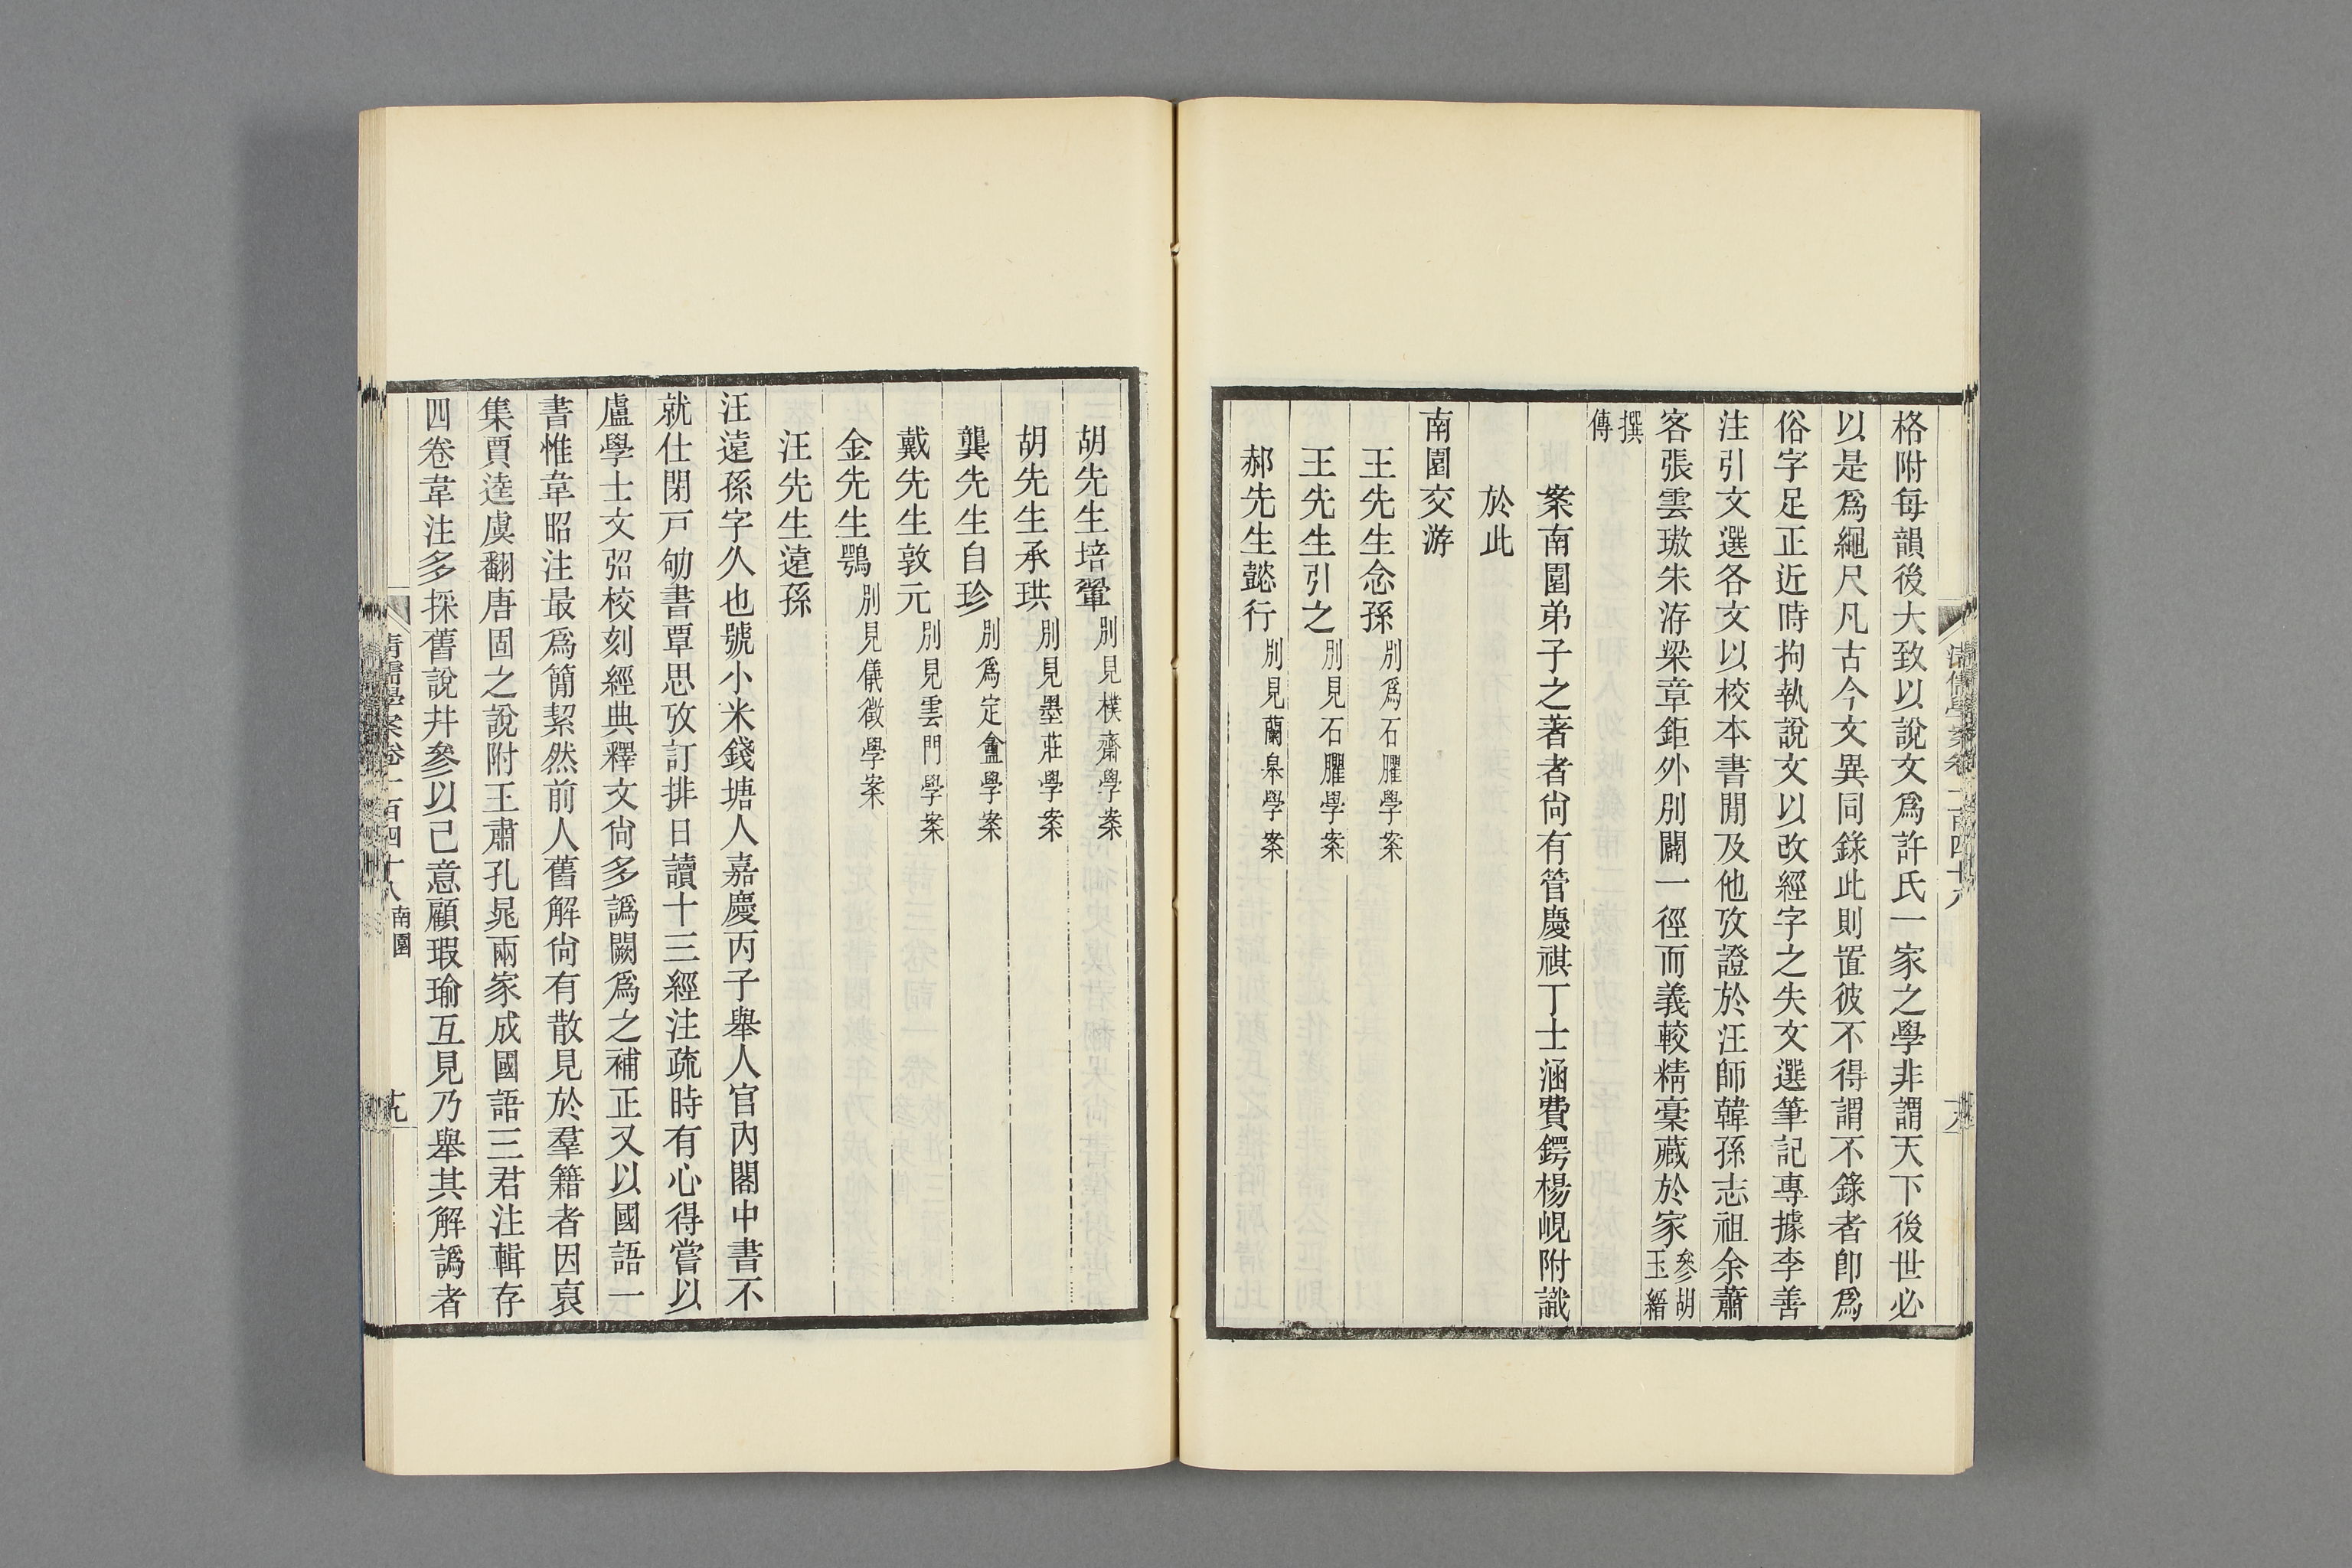 格附每韻後大致以說文爲許氏一家之學非謂天下後世必
以是爲繩尺凡古今文異同錄此則置彼不得謂不錄者卽爲
俗字足正近時拘執說文以改經字之失文選筆記專據李善
注引文選各文以校本書閒及他攷證於汪師韓孫志祖余蕭
客張雲璈朱洊梁章鉅外別闢一徑而義較精稾藏於家參胡玉縉
撰傳
案南園弟子之著者尙有管慶祺丁士涵費鍔楊峴附識
於此
南園交游
王先生念孫別爲石臞學案
王先生引之別見石臞學案
郝先生懿行別見蘭皋學案
胡先生培翬別見樸齋學案
胡先生承珙別見墨莊學案
龔先生自珍別爲定盦學案
戴先生敦元別見雲門學案
金先生鶚別見儀徵學案
汪先生遠孫
汪遠孫字久也號小米錢塘人嘉慶丙子舉人官內閣中書不
就仕閉戸劬書覃思攷訂排日讀十三經注疏時有心得嘗以
盧學士文弨校刻經典釋文尙多譌闕爲之補正又以國語一
書惟韋昭注最爲簡絜然前人舊解尙有散見於羣籍者因裒
集賈逵虞翻唐固之說附王肅孔晁兩家成國語三君注輯存
四卷韋注多採舊說幷參以己意顧瑕瑜互見乃舉其解譌者
清儒學案卷一百四十八 南園